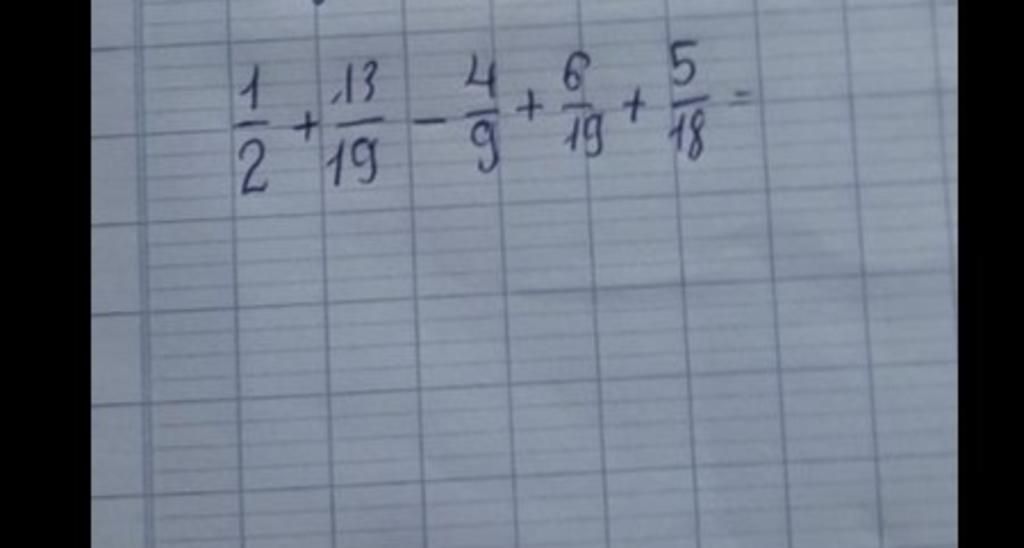 1/2 + 13/19 - 4/9 + 6/19 + 5/18 =